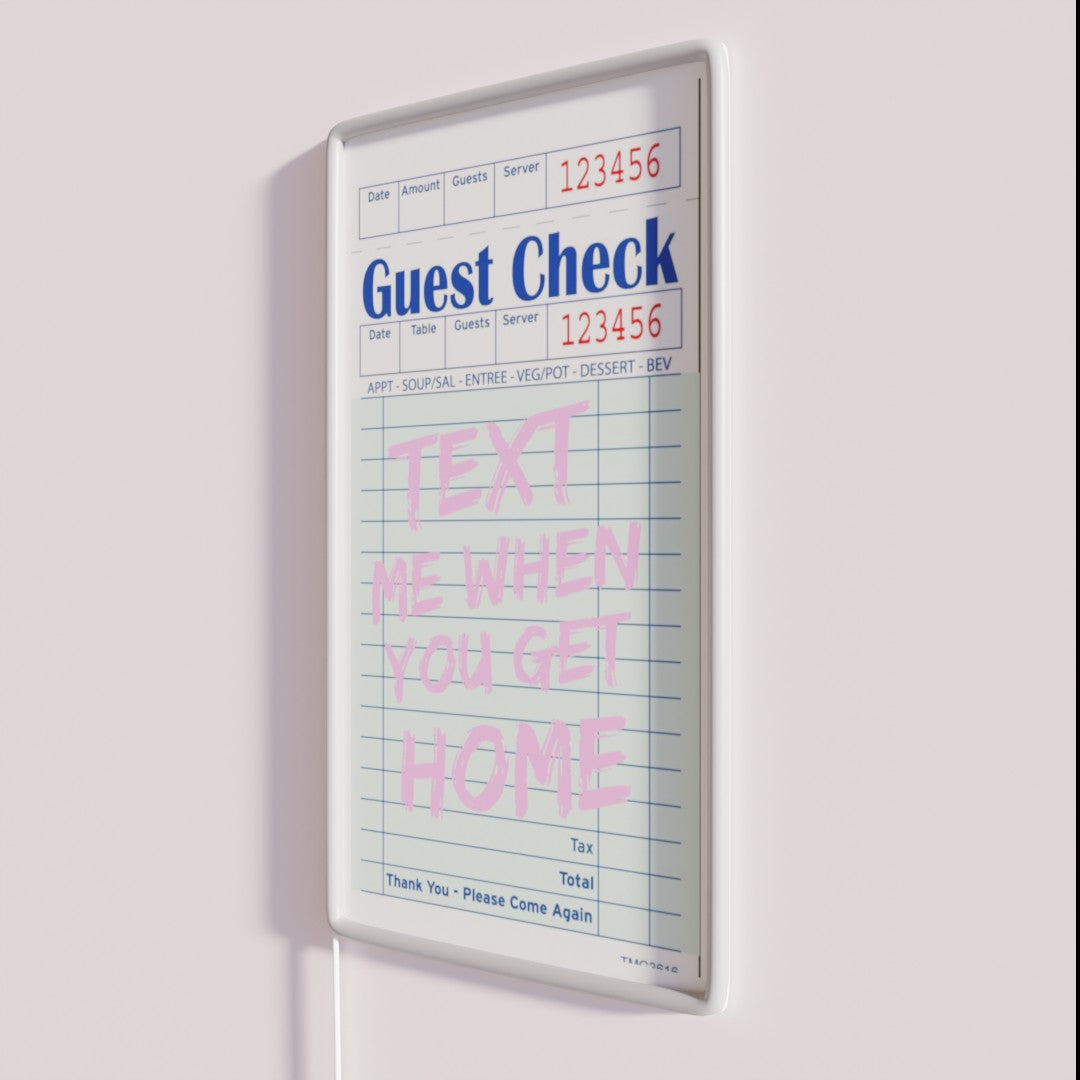 Date Amount Guests Server 123456
Guest Check
Date Table Guests Server 123456
APPT - SOUP/SAL - ENTREE - VEG/POT - DESSERT - BEV
TEXT
ME WHEN
YOU GET
HOME
Tax
Total
Thank You - Please Come Again